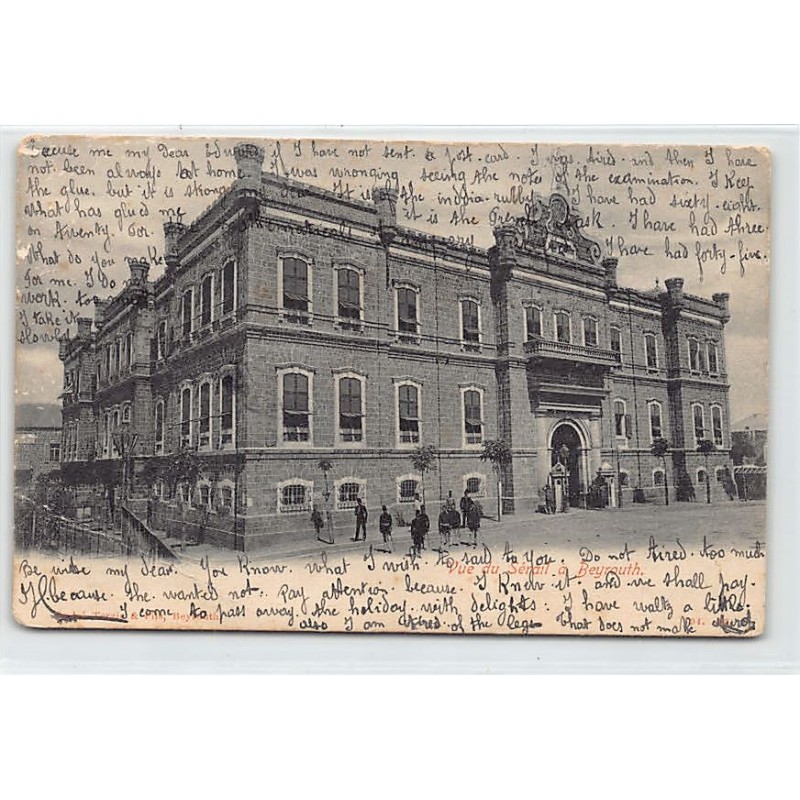 Excuse me my Dear Edward if I have not sent a post-card. I was tired. and then I have
not been always at home. I was wrongning seeing the note of the examination. I Keep
the glue. but it is strong my dear. It is the india-rubby. I have had sixty-eight.
what has glued my it is the French task. I have had three
on twenty. for I have had forty-five
What do you make
for me. I do my
work. too
I take it
slowly
Be wise my Dear. You Know. What I wish to said to You. Do not tired. too much
Because. she wanted not. Pay attention because. I Knew it. and we shall pay.
Vue du Sérail à Beyrouth.
Terzis & Fils, Beyrouth
I come to pass away. the holiday. with delights. I have waltz a little.
also I am tired. of the legs That does not make